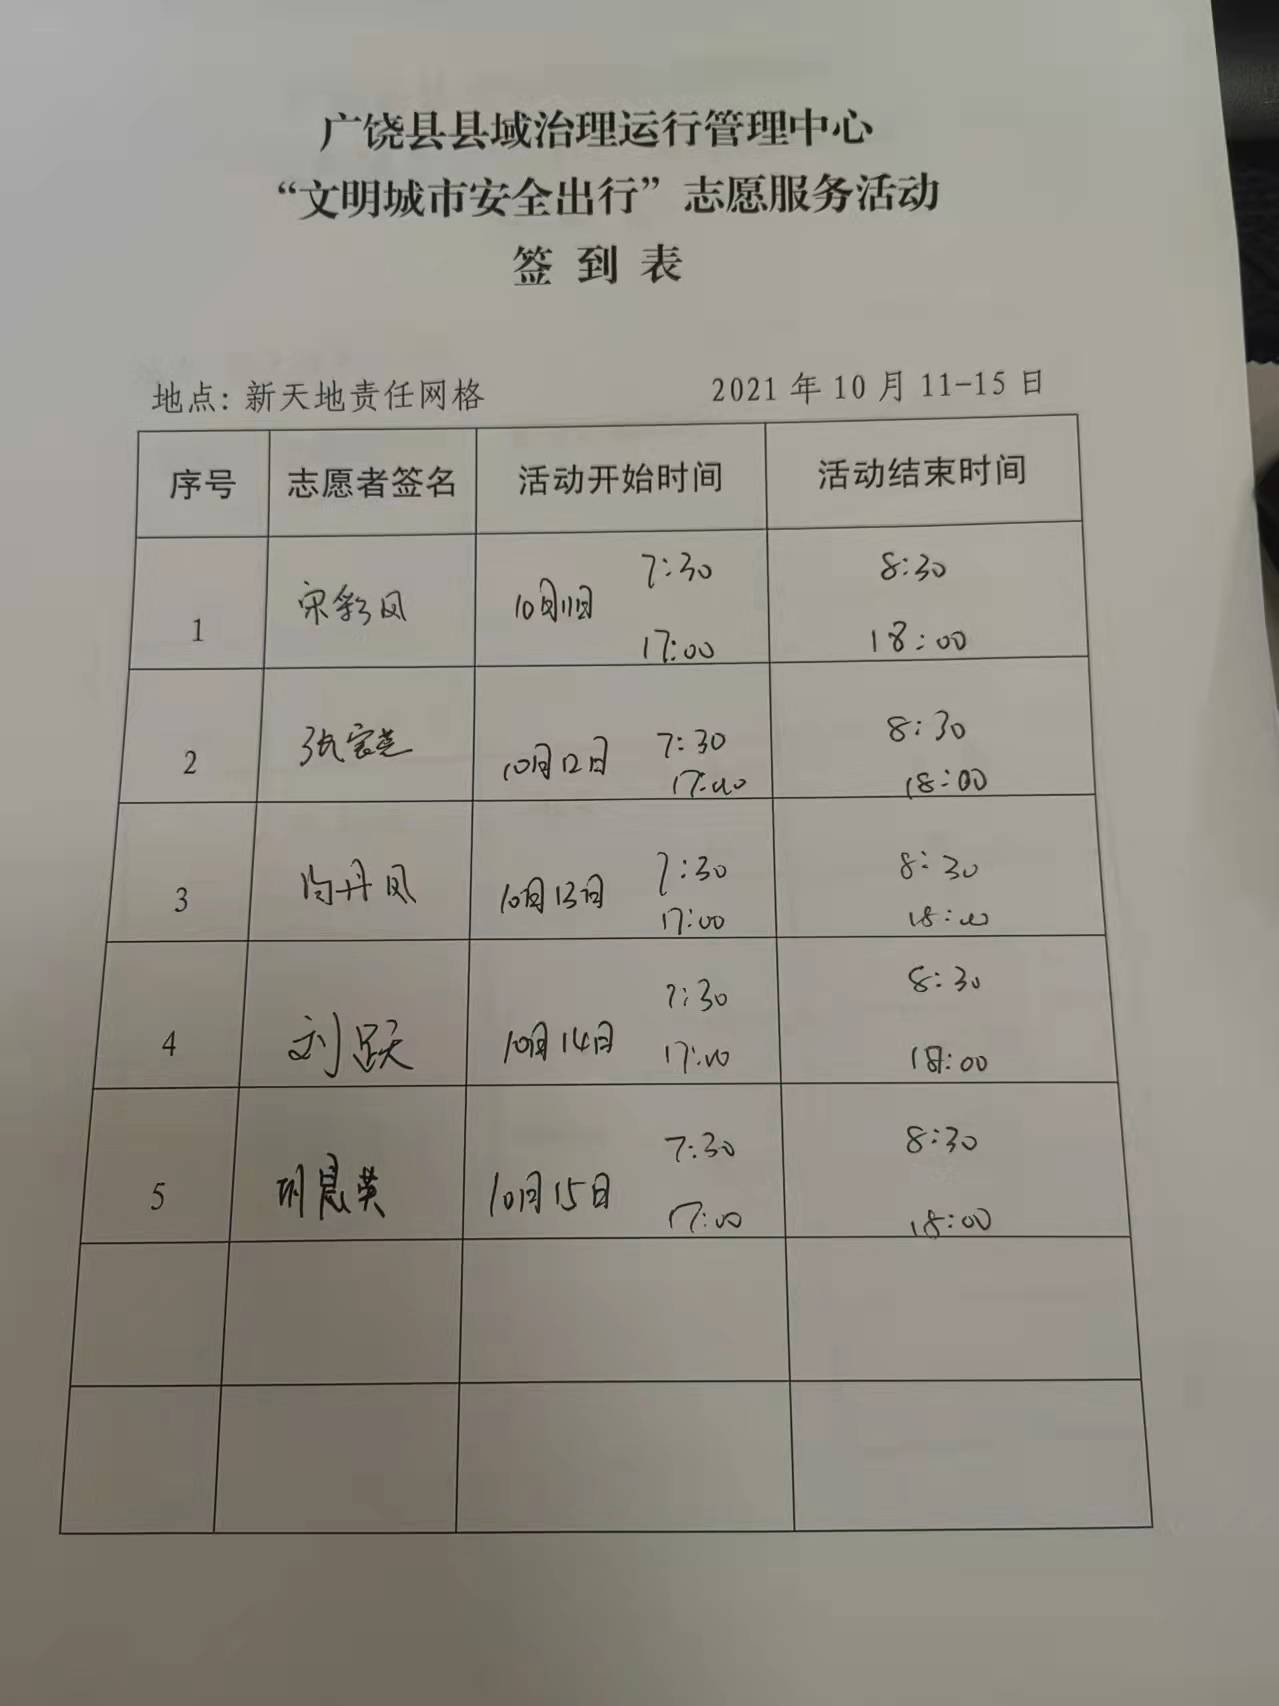 广饶县县域治理运行管理中心
“文明城市安全出行”志愿服务活动
签到表
地点：新天地责任网格 2021年10月11-15日
序号 志愿者签名 活动开始时间 活动结束时间
7:30 8:30
1 宋彩凤 10月11日
17:00 18:00
7:30 8:30
2 张宝芝 10月12日
17:00 18:00
7:30 8:30
3 丹凤 10月13日
17:00 18:00
7:30 8:30
4 刘跃 10月14日
17:00 18:00
7:30 8:30
5 英 10月15日
17:00 18:00